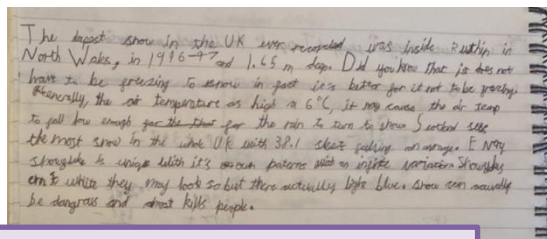 The deepest snow in the UK ever recorded was inside Ruthin in
North Wales, in 1946-47 and 1.65 m deep. Did you know that is does not
have to be freezing to snow in fact it's better for it not to be
Generally, the air temperature as high a 6°C, it may cause the air temp
to fall low enough for the for the rain to turn to snow Scotland sees
the most snow in the whole UK with 38.1 falling on average. Every
snowflake is unique with it's own paterns with an infinite variation Snowflakes
white they may look so but there actually light blue. Snow can
be dangrous and kills people.